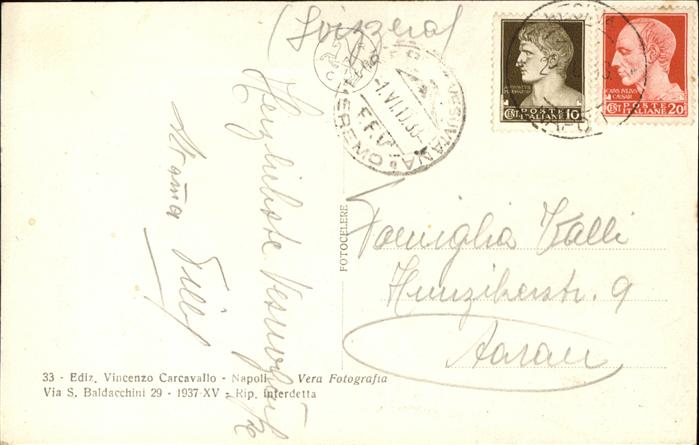 (Svizzera)
Herzlichste Vesuvgrüsse
Mama
POSTE
ITALIANE
CENT 10
CAIVS IVLIVS
CAESAR
POSTE
ITALIANE
CENT 20
FOTOCELERE
Famiglia Zalli
Hunzikerstr. 9
Aarau
33 - Ediz. Vincenzo Carcavallo - Napoli - Vera Fotografia
Via S. Baldacchini 29 - 1937-XV - Rip. interdetta